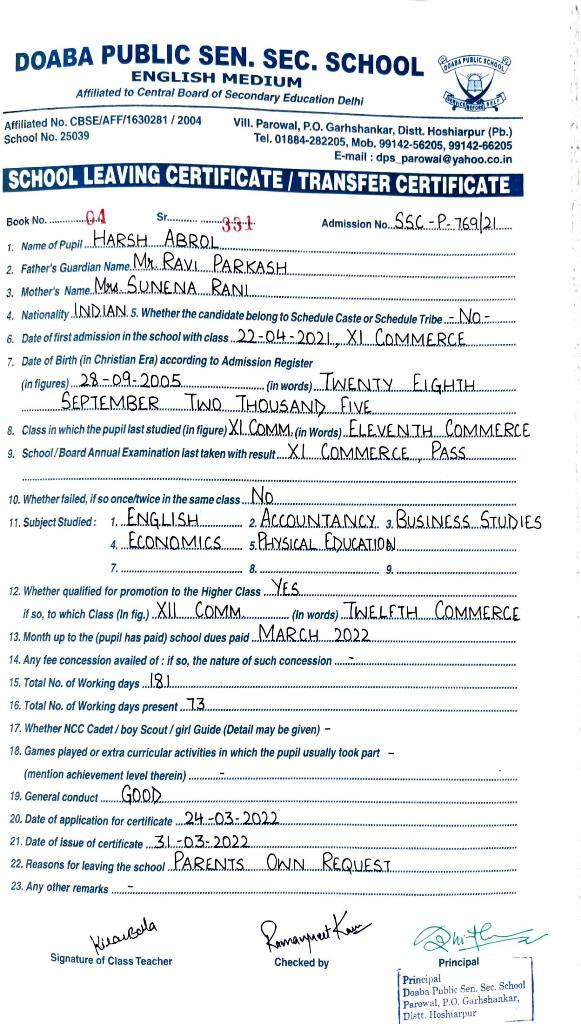 DOABA PUBLIC SEN. SEC. SCHOOL
ENGLISH MEDIUM
Affiliated to Central Board of Secondary Education Delhi
DOABA PUBLIC SCHOOL
Affiliated No. CBSE/AFF/1630281 / 2004
School No. 25039
Vill. Parowal, P.O. Garhshankar, Distt. Hoshiarpur (Pb.)
Tel. 01884-282205, Mob. 99142-56205, 99142-66205
E-mail : dps_parowal@yahoo.co.in
SCHOOL LEAVING CERTIFICATE / TRANSFER CERTIFICATE
Book No. 04 Sr. 331 Admission No. SSC-P-769/21
1. Name of Pupil HARSH ABROL
2. Father's Guardian Name Mr. RAVI PARKASH
3. Mother's Name Mrs SUNENA RANI
4. Nationality INDIAN 5. Whether the candidate belong to Schedule Caste or Schedule Tribe - No -
6. Date of first admission in the school with class 22-04-2021, XI COMMERCE
7. Date of Birth (in Christian Era) according to Admission Register
(in figures) 28-09-2005 (in words) TWENTY EIGHTH
SEPTEMBER TWO THOUSAND FIVE
8. Class in which the pupil last studied (in figure) XI COMM. (in Words) ELEVENTH COMMERCE
9. School / Board Annual Examination last taken with result XI COMMERCE, PASS
10. Whether failed, if so once/twice in the same class NO
11. Subject Studied : 1. ENGLISH 2. ACCOUNTANCY 3. BUSINESS STUDIES
4. ECONOMICS 5. PHYSICAL EDUCATION
7. 8. 9.
12. Whether qualified for promotion to the Higher Class YES
if so, to which Class (In fig.) XII COMM. (In Words) TWELFTH COMMERCE
13. Month up to the (pupil has paid) school dues paid MARCH 2022
14. Any fee concession availed of : if so, the nature of such concession -
15. Total No. of Working days 181
16. Total No. of Working days present 73
17. Whether NCC Cadet / boy Scout / girl Guide (Detail may be given) -
18. Games played or extra curricular activities in which the pupil usually took part -
(mention achievement level therein) -
19. General conduct GOOD
20. Date of application for certificate 24-03-2022
21. Date of issue of certificate 31-03-2022
22. Reasons for leaving the school PARENTS OWN REQUEST
23. Any other remarks -
Kiran Bala Ramanpreet Kaur
Signature of Class Teacher Checked by Principal
Principal
Doaba Public Sen. Sec. School
Parowal, P.O. Garhshankar,
Distt. Hoshiarpur